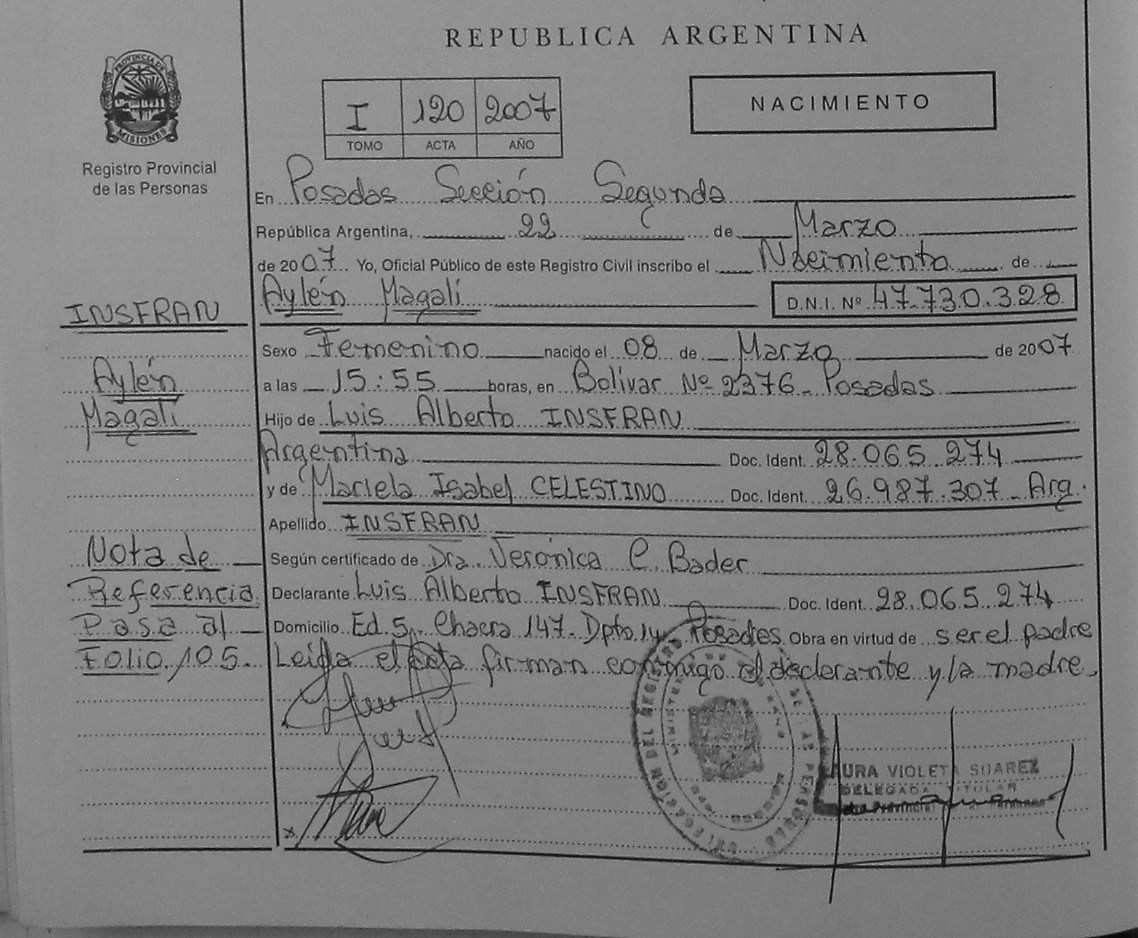 REPUBLICA ARGENTINA
PROVINCIA DE MISIONES
Registro Provincial
de las Personas
I 120 2007
TOMO ACTA AÑO
NACIMIENTO
En Posadas Sección Segunda
República Argentina, 22 de Marzo
de 2007 Yo, Oficial Público de este Registro Civil inscribo el Nacimiento de
Aylén Magalí D.N.I. Nº 47.730.328
INSFRAN
Aylén
Magalí
Sexo Femenino nacido el 08 de Marzo de 2007
a las 15:55 horas, en Bolívar Nº 2376 - Posadas
Hijo de Luis Alberto INSFRAN
Argentina Doc. Ident. 28.065.274
y de Mariela Isabel CELESTINO Doc. Ident. 26.987.307 - Arg.
Apellido INSFRAN
Según certificado de Dra. Verónica C. Bader
Declarante Luis Alberto INSFRAN Doc. Ident. 28.065.274
Domicilio Ed. 5, Chacra 147 - Dpto. Posadas Obra en virtud de ser el padre
Leída el acta firman conmigo el declarante y la madre.
Nota de
Referencia
Pasa al
Folio 105.
LAURA VIOLETA SUAREZ
DELEGADA TITULAR